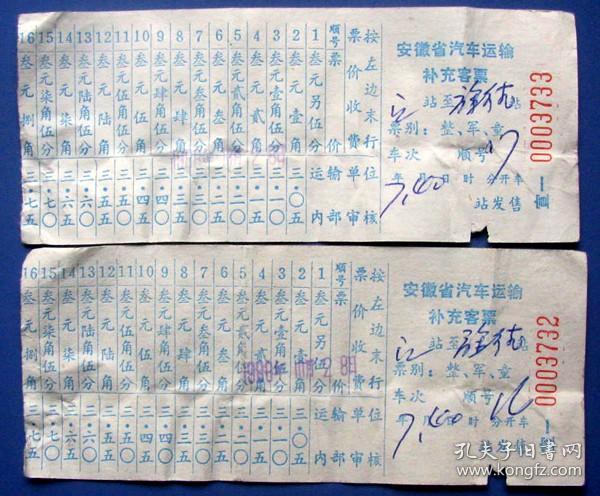 安徽省汽车运输
补充客票
江 站至 站
票别：整、军、童
车次 顺号 17
年 月 日 时 分开车
7,40
站发售
0003733
按左边末行
票价收费
运输单位
内部审核
顺号 票价
1 叁元另伍分
2 叁元壹角 三·〇五
3 叁元壹角伍分 三·一〇
4 叁元贰角 三·一五
5 叁元贰角伍分 三·二〇
6 叁元叁角 三·二五
7 叁元叁角伍分 三·三〇
8 叁元肆角 三·三五
9 叁元肆角伍分 三·四〇
10 叁元伍角 三·四五
11 叁元伍角伍分 三·五〇
12 叁元陆角 三·五五
13 叁元陆角伍分 三·六〇
14 叁元柒角 三·六五
15 叁元柒角伍分 三·七〇
16 叁元捌角 三·七五
安徽省汽车运输
补充客票
江 站至 站
票别：整、军、童
车次 顺号 16
年 月 日 时 分开车
7,40
站发售
0003732
按左边末行
票价收费
运输单位
内部审核
顺号 票价
1 叁元另伍分
2 叁元壹角 三·〇五
3 叁元壹角伍分 三·一〇
4 叁元贰角 三·一五
5 叁元贰角伍分 三·二〇
6 叁元叁角 三·二五
7 叁元叁角伍分 三·三〇
8 叁元肆角 三·三五
9 叁元肆角伍分 三·四〇
10 叁元伍角 三·四五
11 叁元伍角伍分 三·五〇
12 叁元陆角 三·五五
13 叁元陆角伍分 三·六〇
14 叁元柒角 三·六五
15 叁元柒角伍分 三·七〇
16 叁元捌角 三·七五
孔夫子旧书网
www.kongfz.com